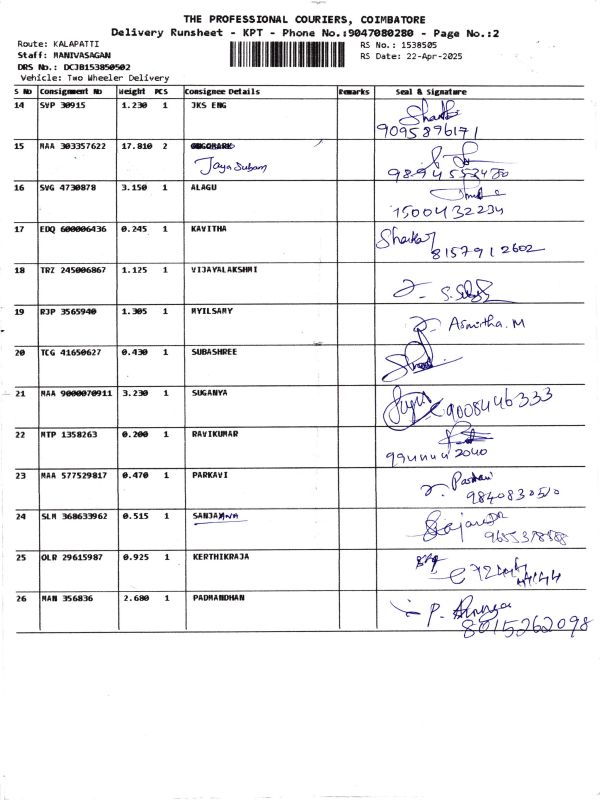 THE PROFESSIONAL COURIERS, COIMBATORE
Delivery Runsheet - KPT - Phone No.:9047080280 - Page No.:2
Route: KALAPATTI
RS No.: 1538505
Staff: MANIVASAGAN
RS Date: 22-Apr-2025
DRS No.: DCJB153850502
Vehicle: Two Wheeler Delivery
S No Consignment No Weight PCS Consignee Details Remarks Seal & Signature
14 SVP 30915 1.230 1 JKS ENG
9095896171
15 MAA 303357622 17.810 2
Jaya Subam
9894552480
16 SVG 4730878 3.150 1 ALAGU
1500432234
17 EDQ 600006436 0.245 1 KAVITHA
8157912602
18 TRZ 245006867 1.125 1 VIJAYALAKSHMI
19 RJP 3565940 1.305 1 MYILSAMY
Asmitha. M
20 TCG 41650627 0.430 1 SUBASHREE
21 MAA 9000070911 3.230 1 SUGANYA
9008446333
22 MTP 1358263 0.200 1 RAVIKUMAR
9944442040
23 MAA 577529817 0.470 1 PARKAVI
9840830510
24 SLM 368633962 0.515 1 SANJAANA
25 OLR 29615987 0.925 1 KERTHIKRAJA
26 MAN 356836 2.680 1 PADMANDHAN
8015262098